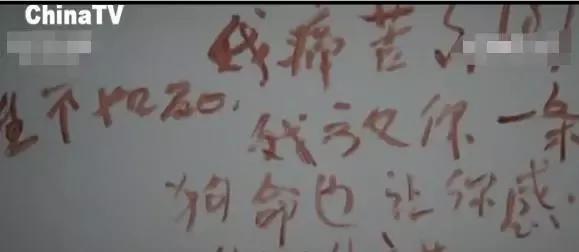 ChinaTV
我痛苦
生不如死
我放你一条
狗命也让你感